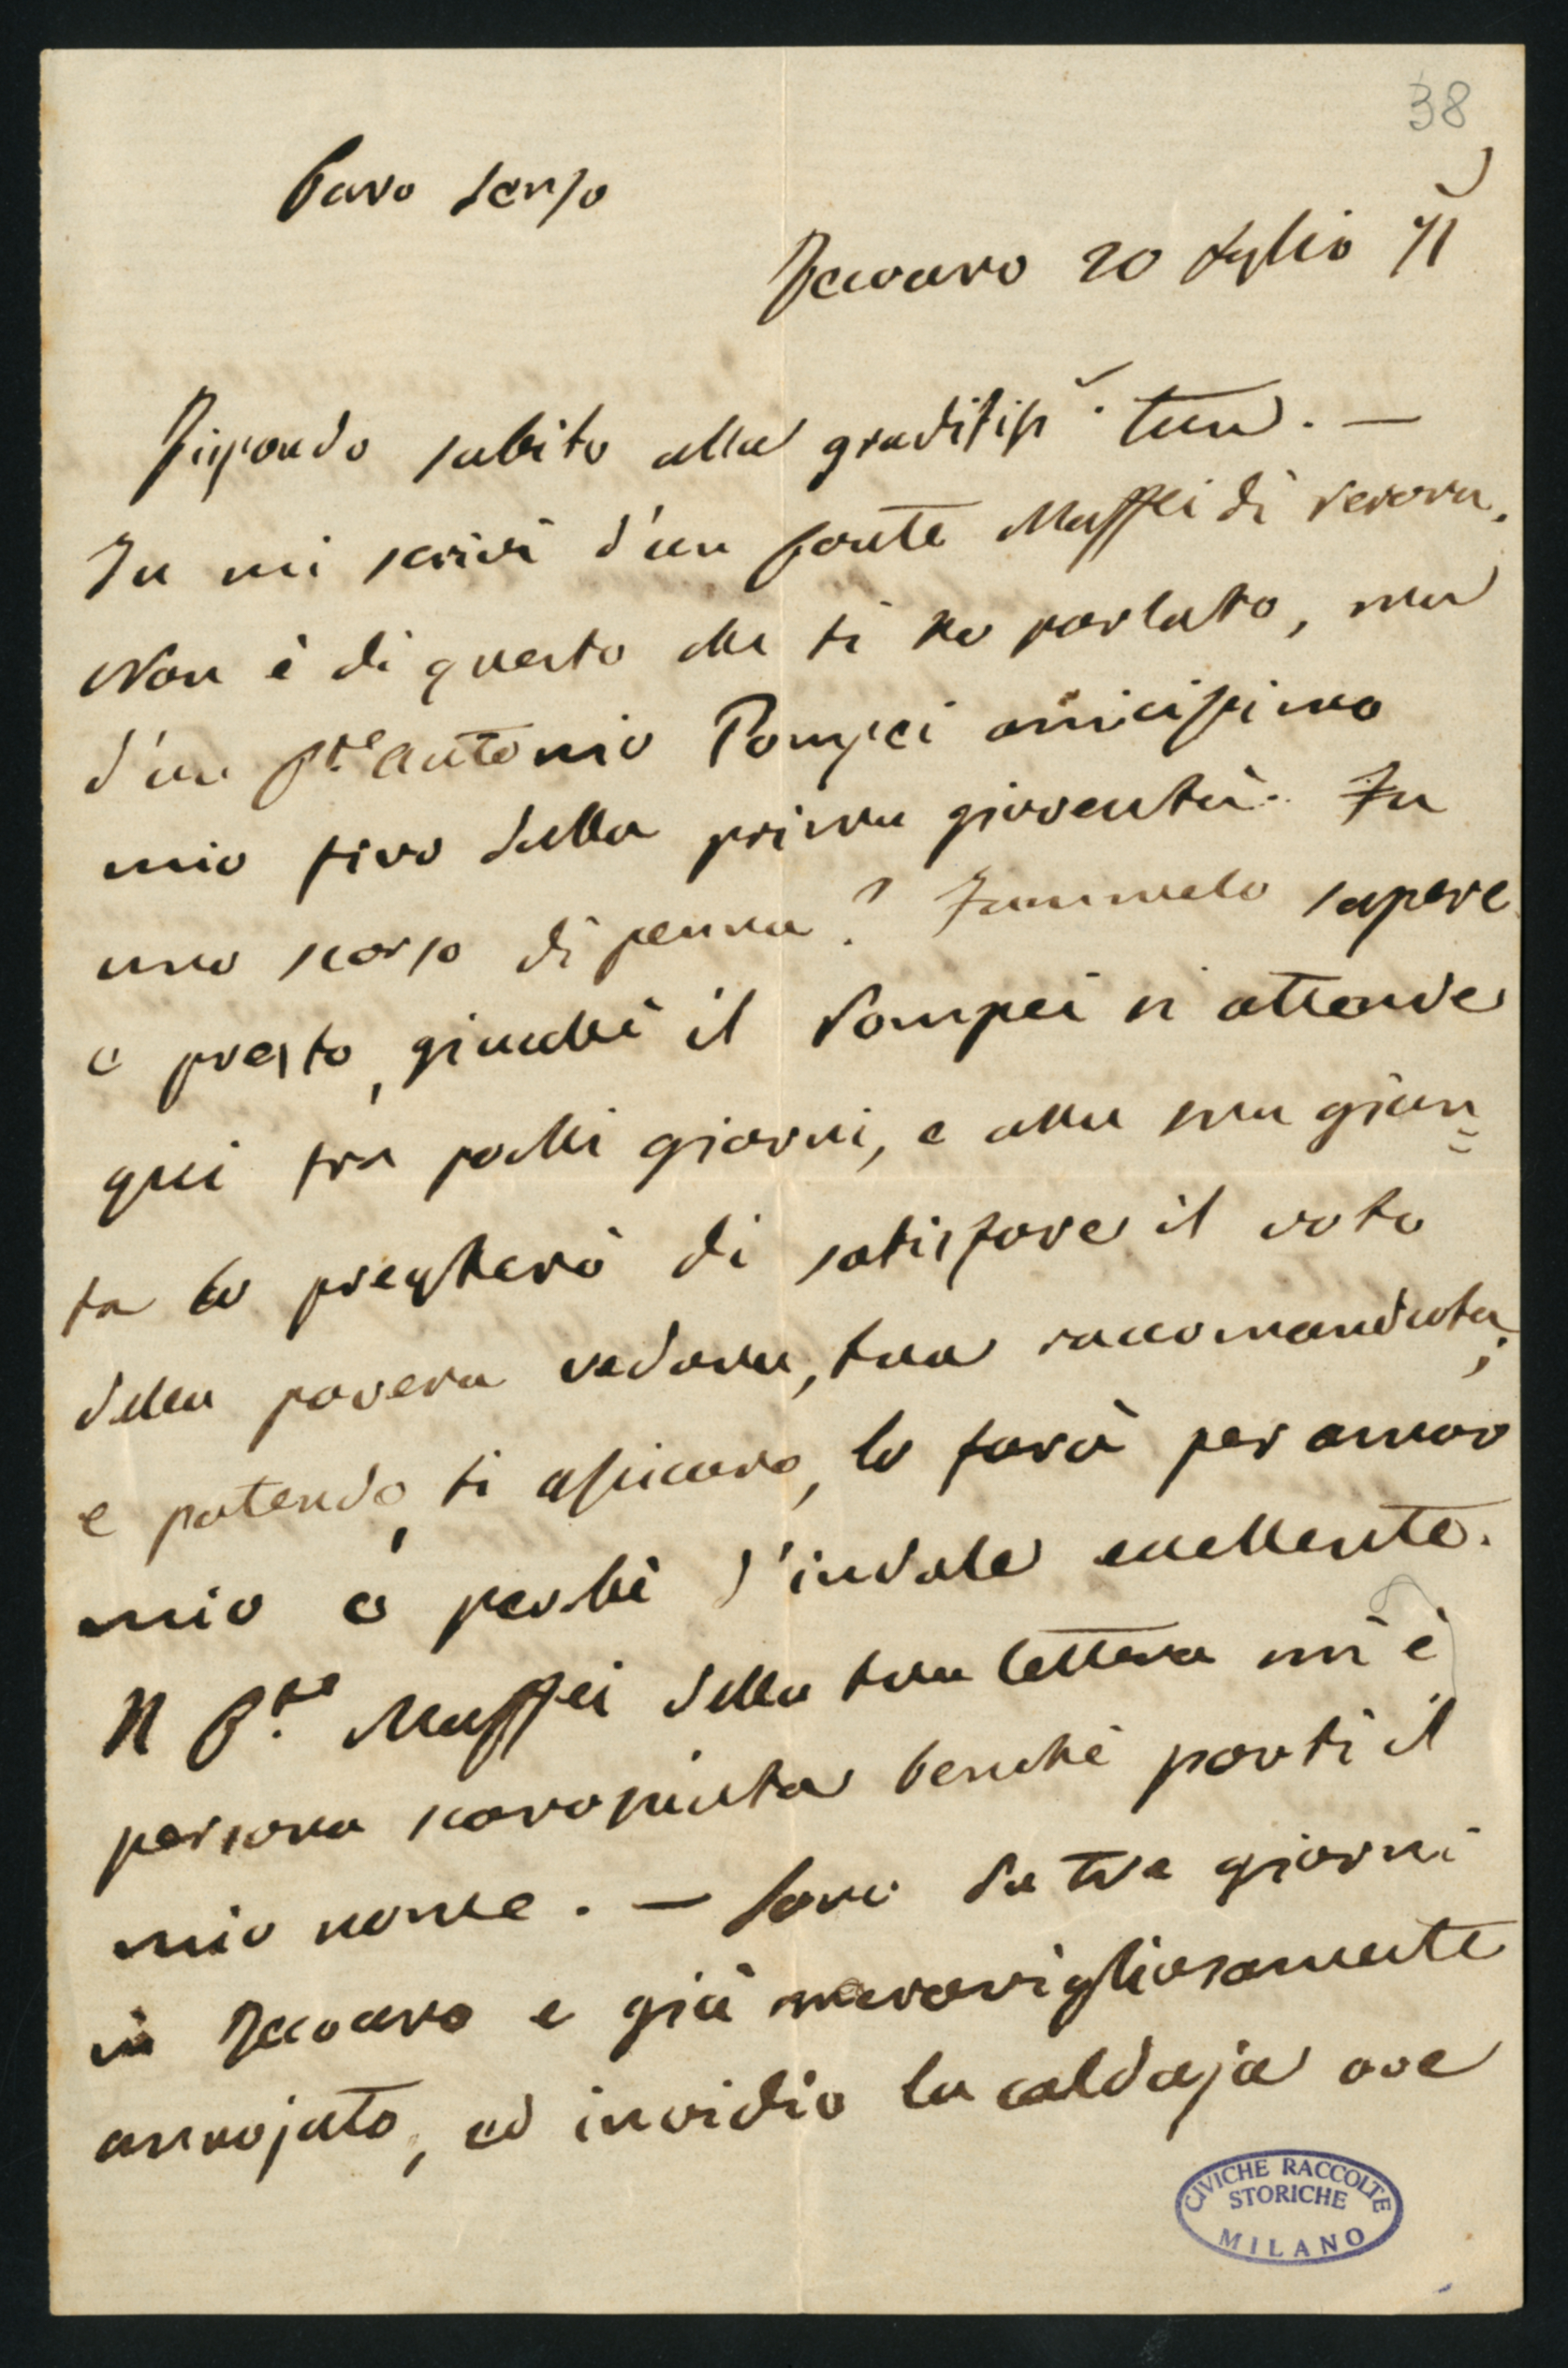 38
Caro Senso
Recoaro 20 Luglio 71
Rispondo subito alla graditiss.ª tua. —
Tu mi scrivi d'un Conte Maffei di Verona.
Non è di questo che ti ho parlato, ma
d'un C.te Antonio Pompei amicissimo
mio fino dalla prima gioventù. Fu
uno scorso di penna? Fammelo sapere
e presto, giacchè il Pompei si attende
qui fra pochi giorni, e alla sua giun=
ta lo pregherò di satisfare il voto
della povera vedova, tua raccomandata;
e potendo, ti assicuro, lo farà per amor
mio e perchè d'indole eccellente.
Il C.te Maffei della tua lettera mi è
persona sconosciuta benchè porti il
mio nome. — Sono da tre giorni
in Recoaro e già meravigliosamente
annojato, ed invidio la caldaja ove
CIVICHE RACCOLTE
STORICHE
MILANO